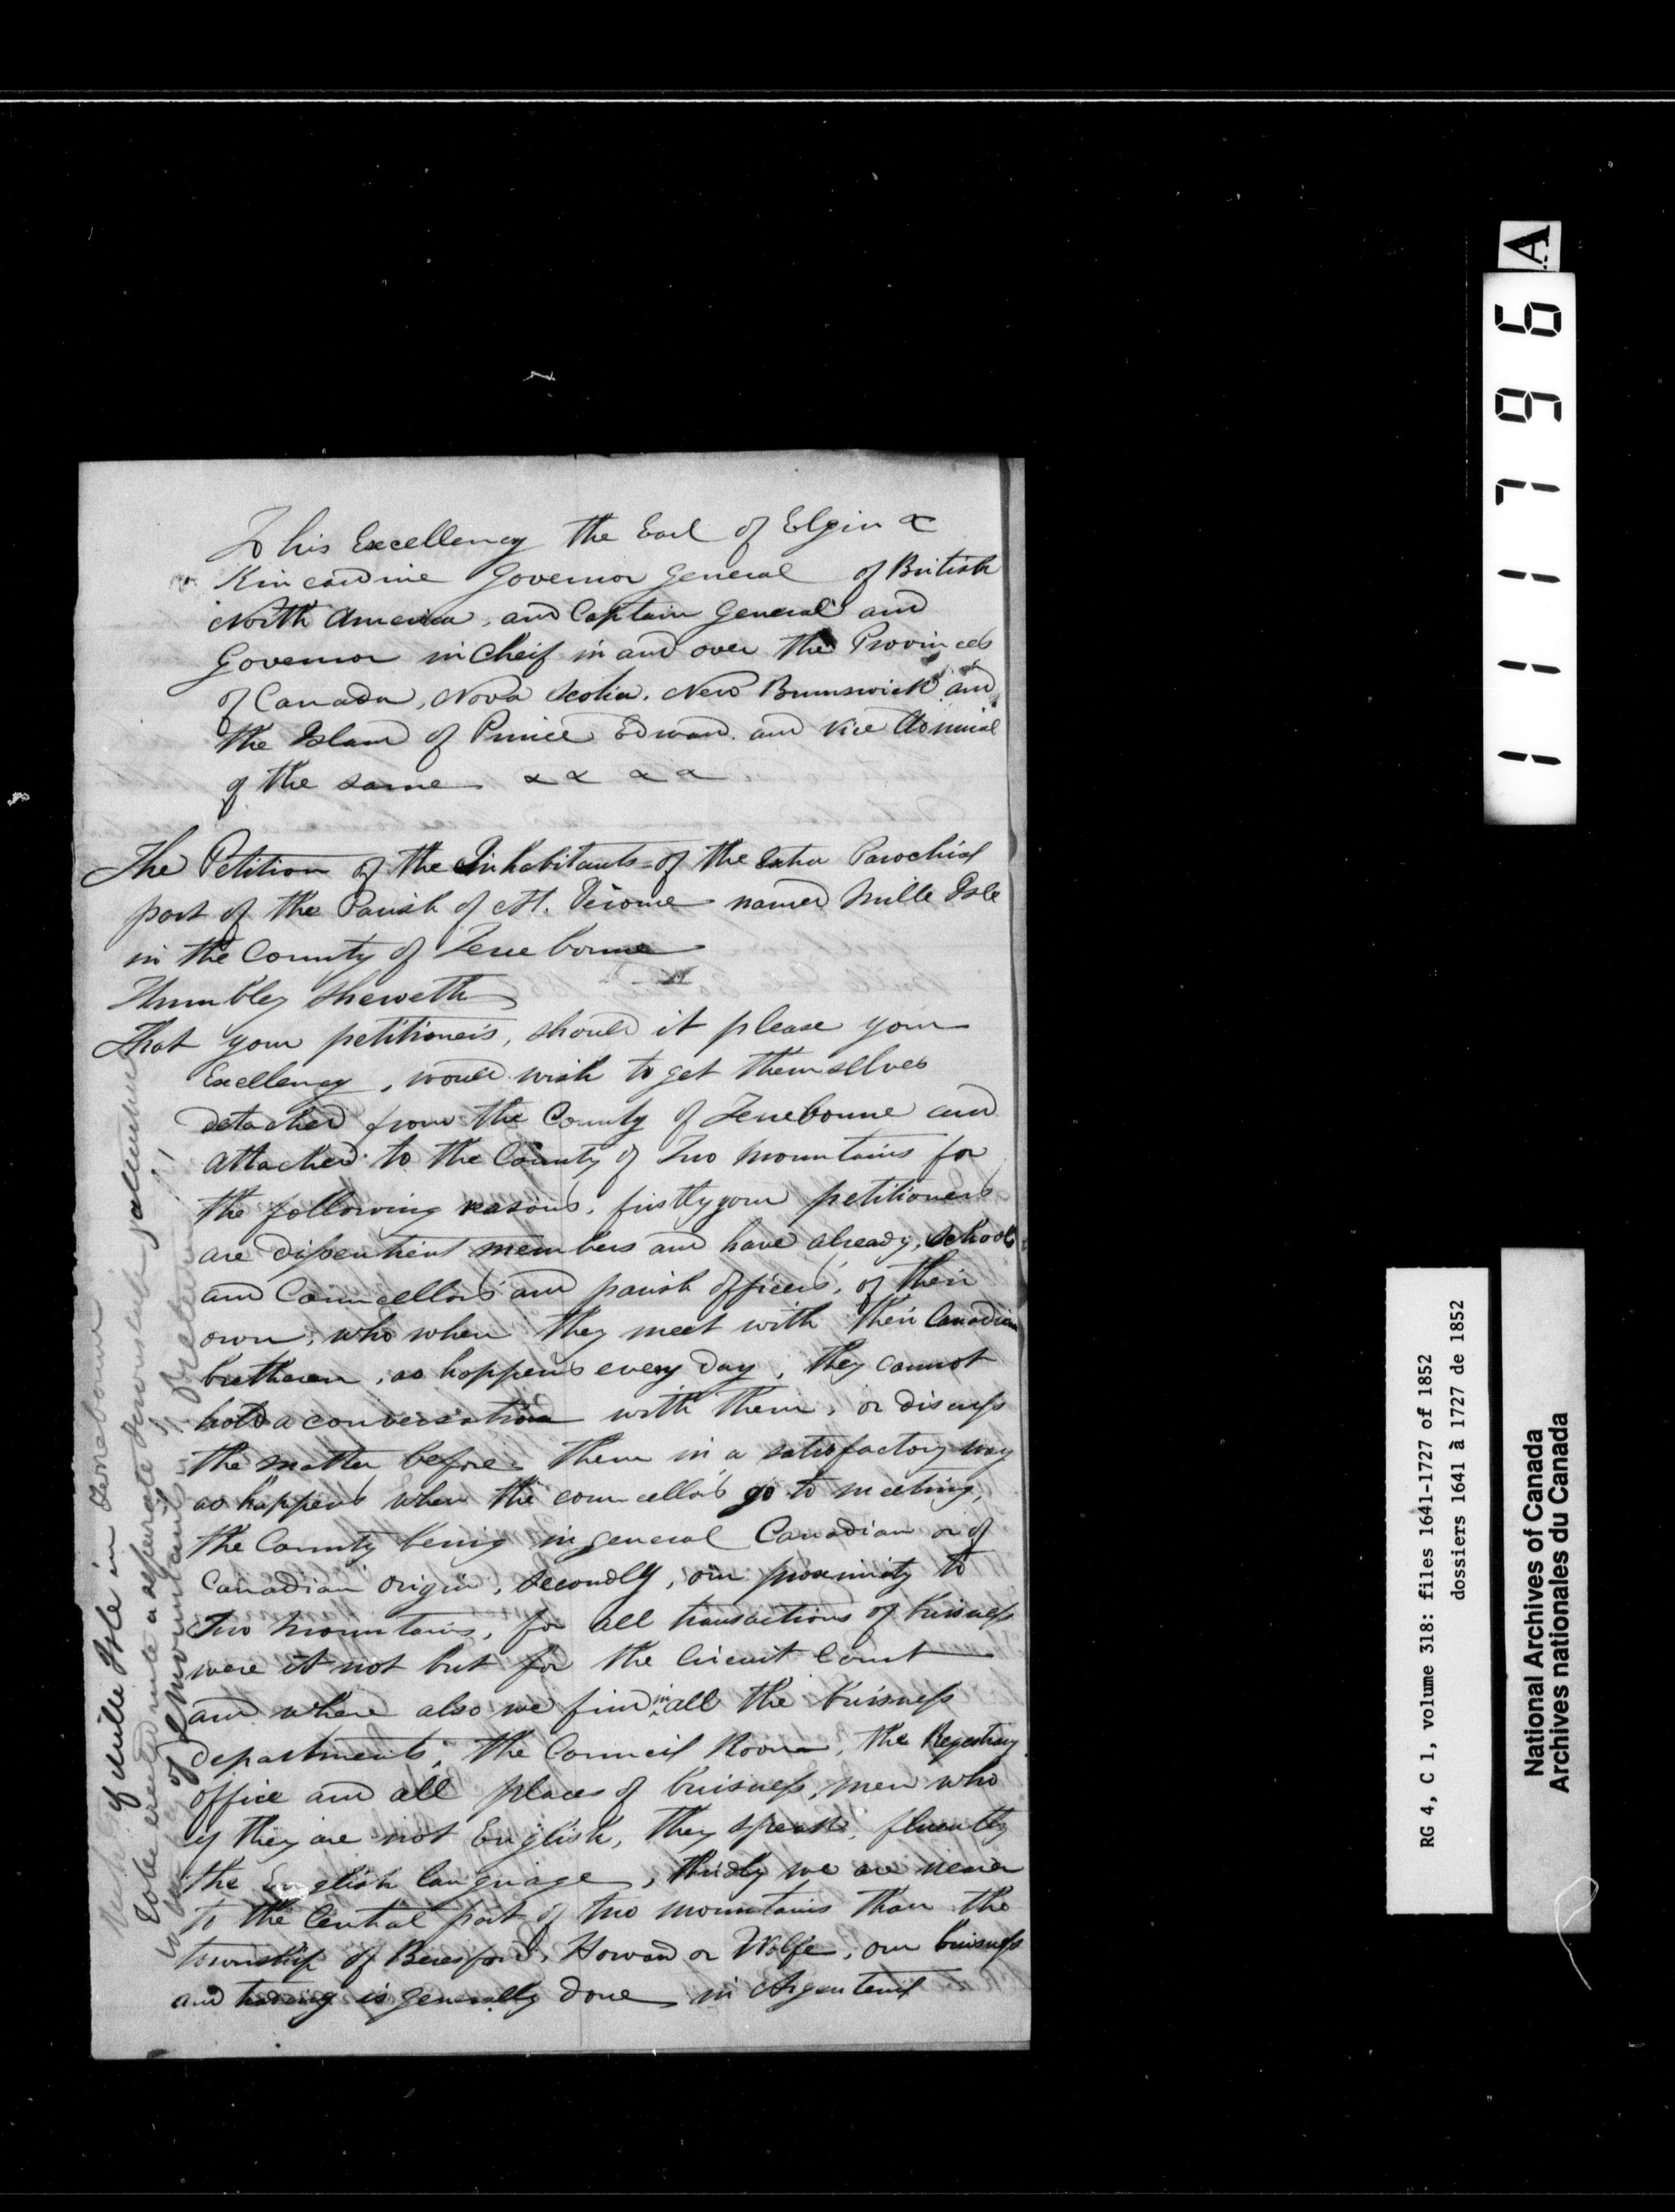 To his Excellency the Earl of Elgin &
Kincardine Governor General of British
North America, and Captain General and
Governor in Cheif in and over the Provinces
of Canada, Nova Scotia, New Brunswick and
the Island of Prince Edward and Vice Admiral
of the same & & & &
The Petition of the Inhabitants of the Extra Parochial
part of the Parish of St. Jerome named Mille Isle
in the County of Terrebonne
Humbley Sheweth
That your petitioners, should it please your
Excellency, would wish to get themsellves
detached from the County of Terrebonne and
attached to the County of Two Mountains for
the following reasons, firstly your petitioners
are dissentient members and have already, Schools
and Councellors and parish officers, of their
own, who when they meet with their Canadian
bretheren, as happens every day, they cannot
hold a conversation with them, or discuss
the matter before them in a satisfactory way
as happens when the councellors go to meeting,
the County being in general Canadian or of
Canadian origin, secondly, our proximity to
Two Mountains, for all transactions of buisness
were it not but for the Circuit Court
and where also we find in all the buisness
departments, the Council Room, the Regestry
office and all places of buisness, men who
if they are not English, they speak, fluently
the English language, thirdly we are nearer
to the Central part of Two Mountains than the
township of Beresford, Howard or Wolfe, our buisness
and trading is generally done in Argenteuil
of Mille Isle in Terrebonne
To be erected into a seperate Township
of 2 Mountains
111796
A
RG 4, C 1, volume 318: files 1641-1727 of 1852
dossiers 1641 à 1727 de 1852
National Archives of Canada
Archives nationales du Canada